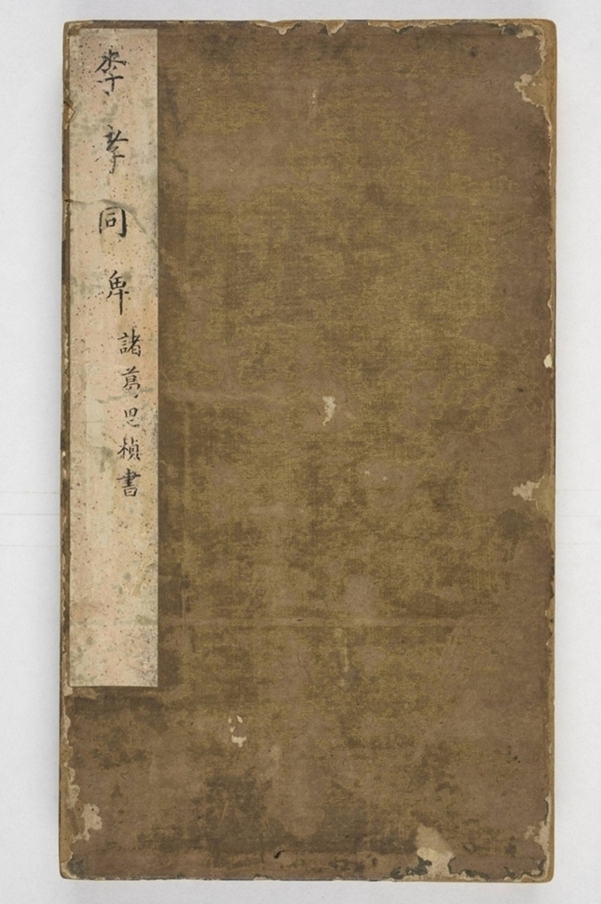 李孝同碑
諸葛思楨書